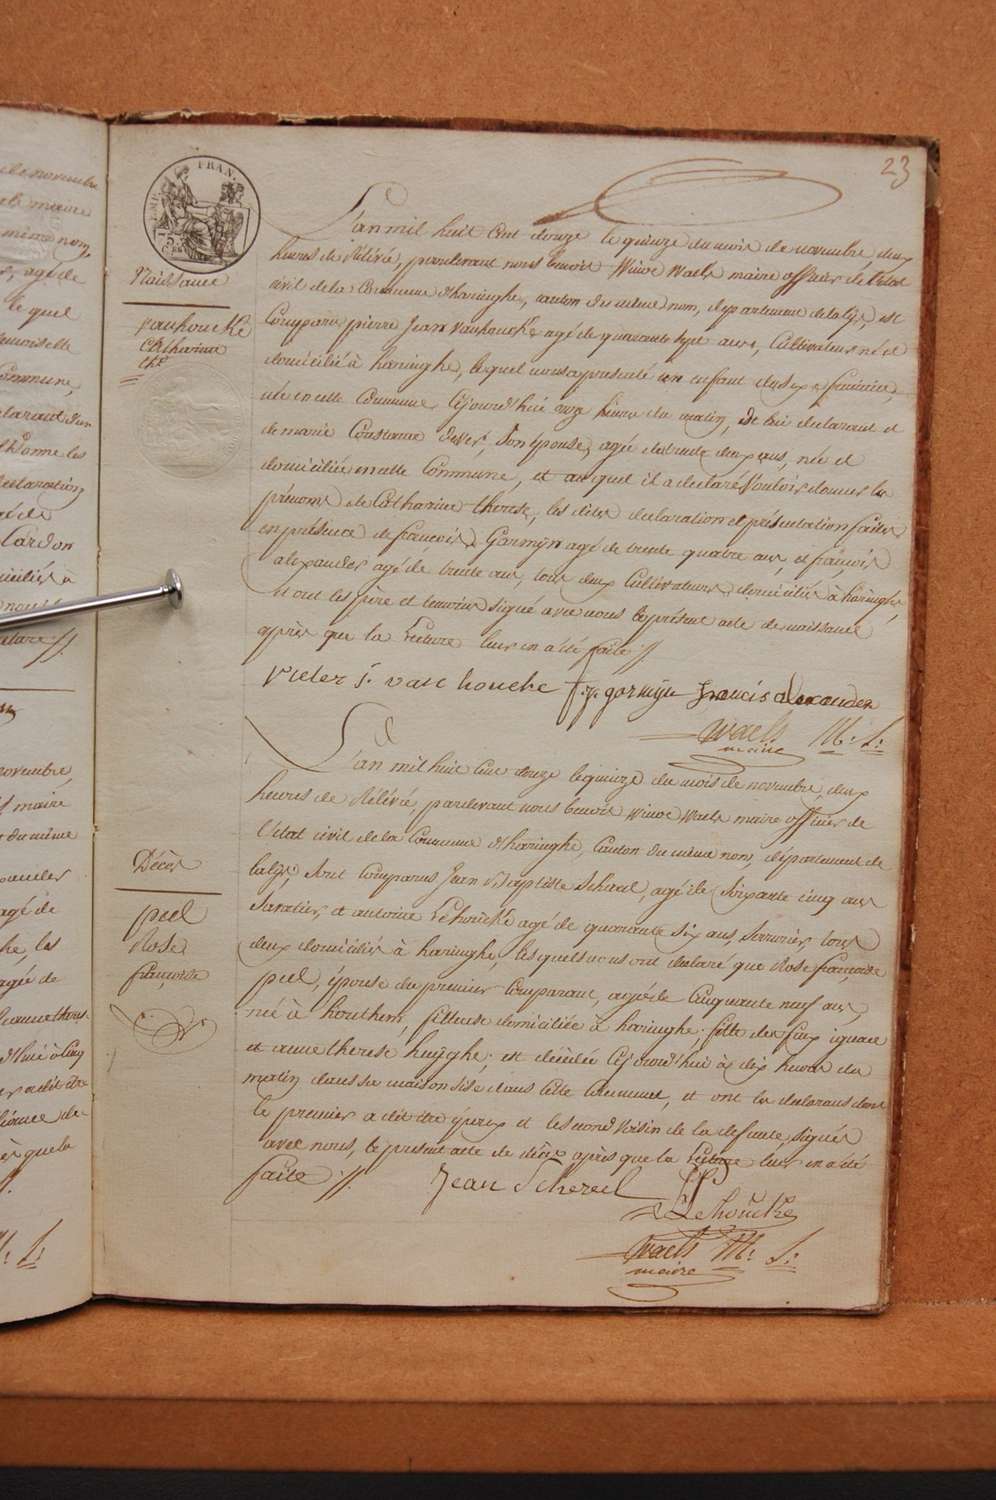 23
FRAN
Naissance
vanhoucke
Catharine
The
L'an mil huit cent douze le quinze du mois de novembre deux
heures de Rélévé, pardevant nous benoit Winoc Waels maire officier de l'état
civil de la Commune d'haringhe, canton du même nom, département de la lys, est
Comparu pierre Jean vanhoucke agé de quarante sept ans, Cultivateur né et
domicilié à haringhe, lequel nous a presenté un enfant du sexe féminin,
née en cette Commune Cejourd'hui onze heures du matin, de lui declarant et
de marie Constance Son épouse, agée de trente deux ans, née et
domiciliée en cette Commune, et auquel il a declaré Vouloir donner les
prénoms de Catharine therese, les dites declaration et présentation faites
en présence de francois Garmÿn agé de trente quatre ans, et francois
alexander agé de trente ans, tous deux Cultivateurs domiciliés à haringhe,
et ont les pere et temoins signé avec nous le présent acte de naissance
après que la Lecture leur en a été faite //
Pieter J. van houcke f. j. garmijn francis alexander
Waels M: L:
maire
L'an mil huit cent douze le quinze du mois de novembre, deux
heures de Rélévé, pardevant nous benoit Winoc Waels maire officier de
l'état civil de la Commune d'haringhe, Canton du même nom, département de
la lys, sont Comparus Jean Baptiste Schereel, agé de Soixante cinq ans
Savatier, et antoine Lehoucke agé de quarante six ans, serrurier, tous
deux domiciliés à haringhe, lesquels nous ont declaré que Rose françoise
peel, épouse du premier Comparant, agée de Cinquante neuf ans,
née à houthem, fileuse domiciliée à haringhe, fille de feux ignace
et anne therese huÿghe, est décédée Cejourd'hui à dix heures du
matin dans sa maison sise dans cette Commune, et ont les declarans dont
le premier a dit être époux et le second Voisin de la defunte, signés
avec nous, le présent acte de décès après que la Lecture leur en a été
faite //
Décès
peel
Rose
françoise
Jean Schereel
Lehoucke
Waels M: L:
maire